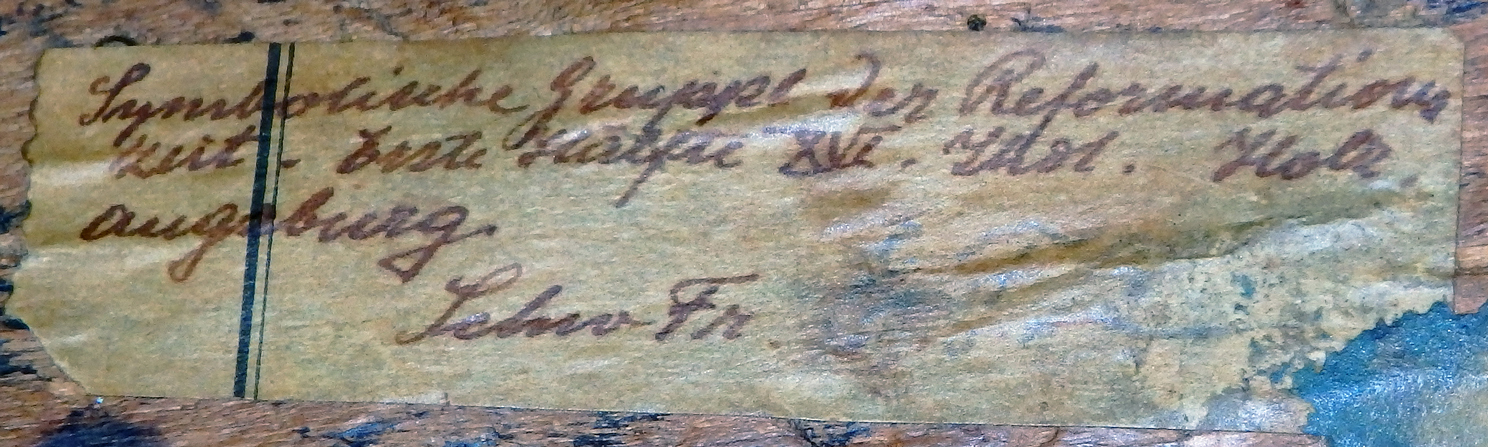 Symbolische Gruppe der Reformations
zeit - Erste Hälfte XVI. Jhd. Holz.
Augsburg.
Fr.